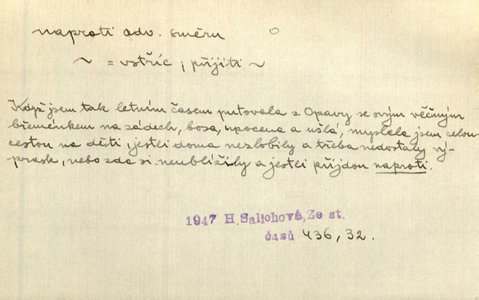 naproti adv. směru
~ = vstříc ; přijíti ~
Když jsem tak letním časem putovala z Opavy se svým věčným
břeménkem na zádech, bosa, upocena a ušlá, myslela jsem celou
cestou na děti, jestli doma nezlobily a třeba nedostaly vý-
prask, nebo zda si neublížily a jestli přijdou naproti.
1947 H. Salichová, Ze st.
časů 436, 32.